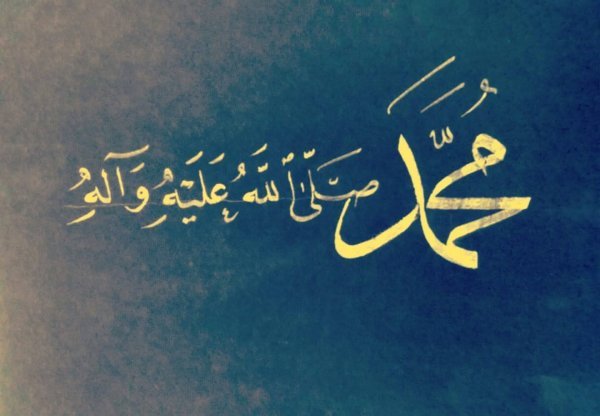 مُحَمَّد صَلَّى ٱللَّهُ عَلَيْهِ وَآلِهِ